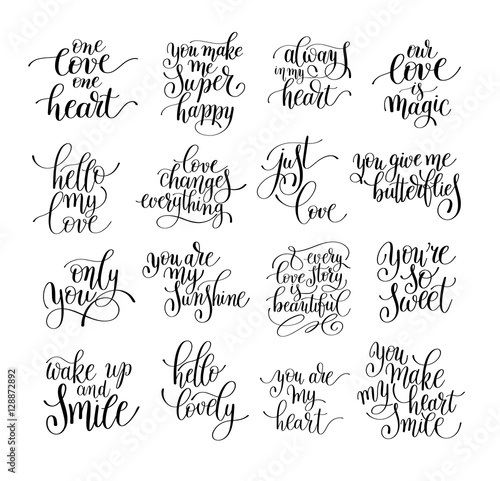 one
love
one
heart
you make
me
super
happy
always
in my
heart
our
love
is
magic
hello
my
love
love
changes
everything
just
love
you give me
butterflies
only
you
you are
my
sunshine
every
love story
is
beautiful
you're
so
sweet
wake up
and
smile
hello
lovely
you are
my
heart
you
make
my heart
smile
Adobe Stock | #128872892